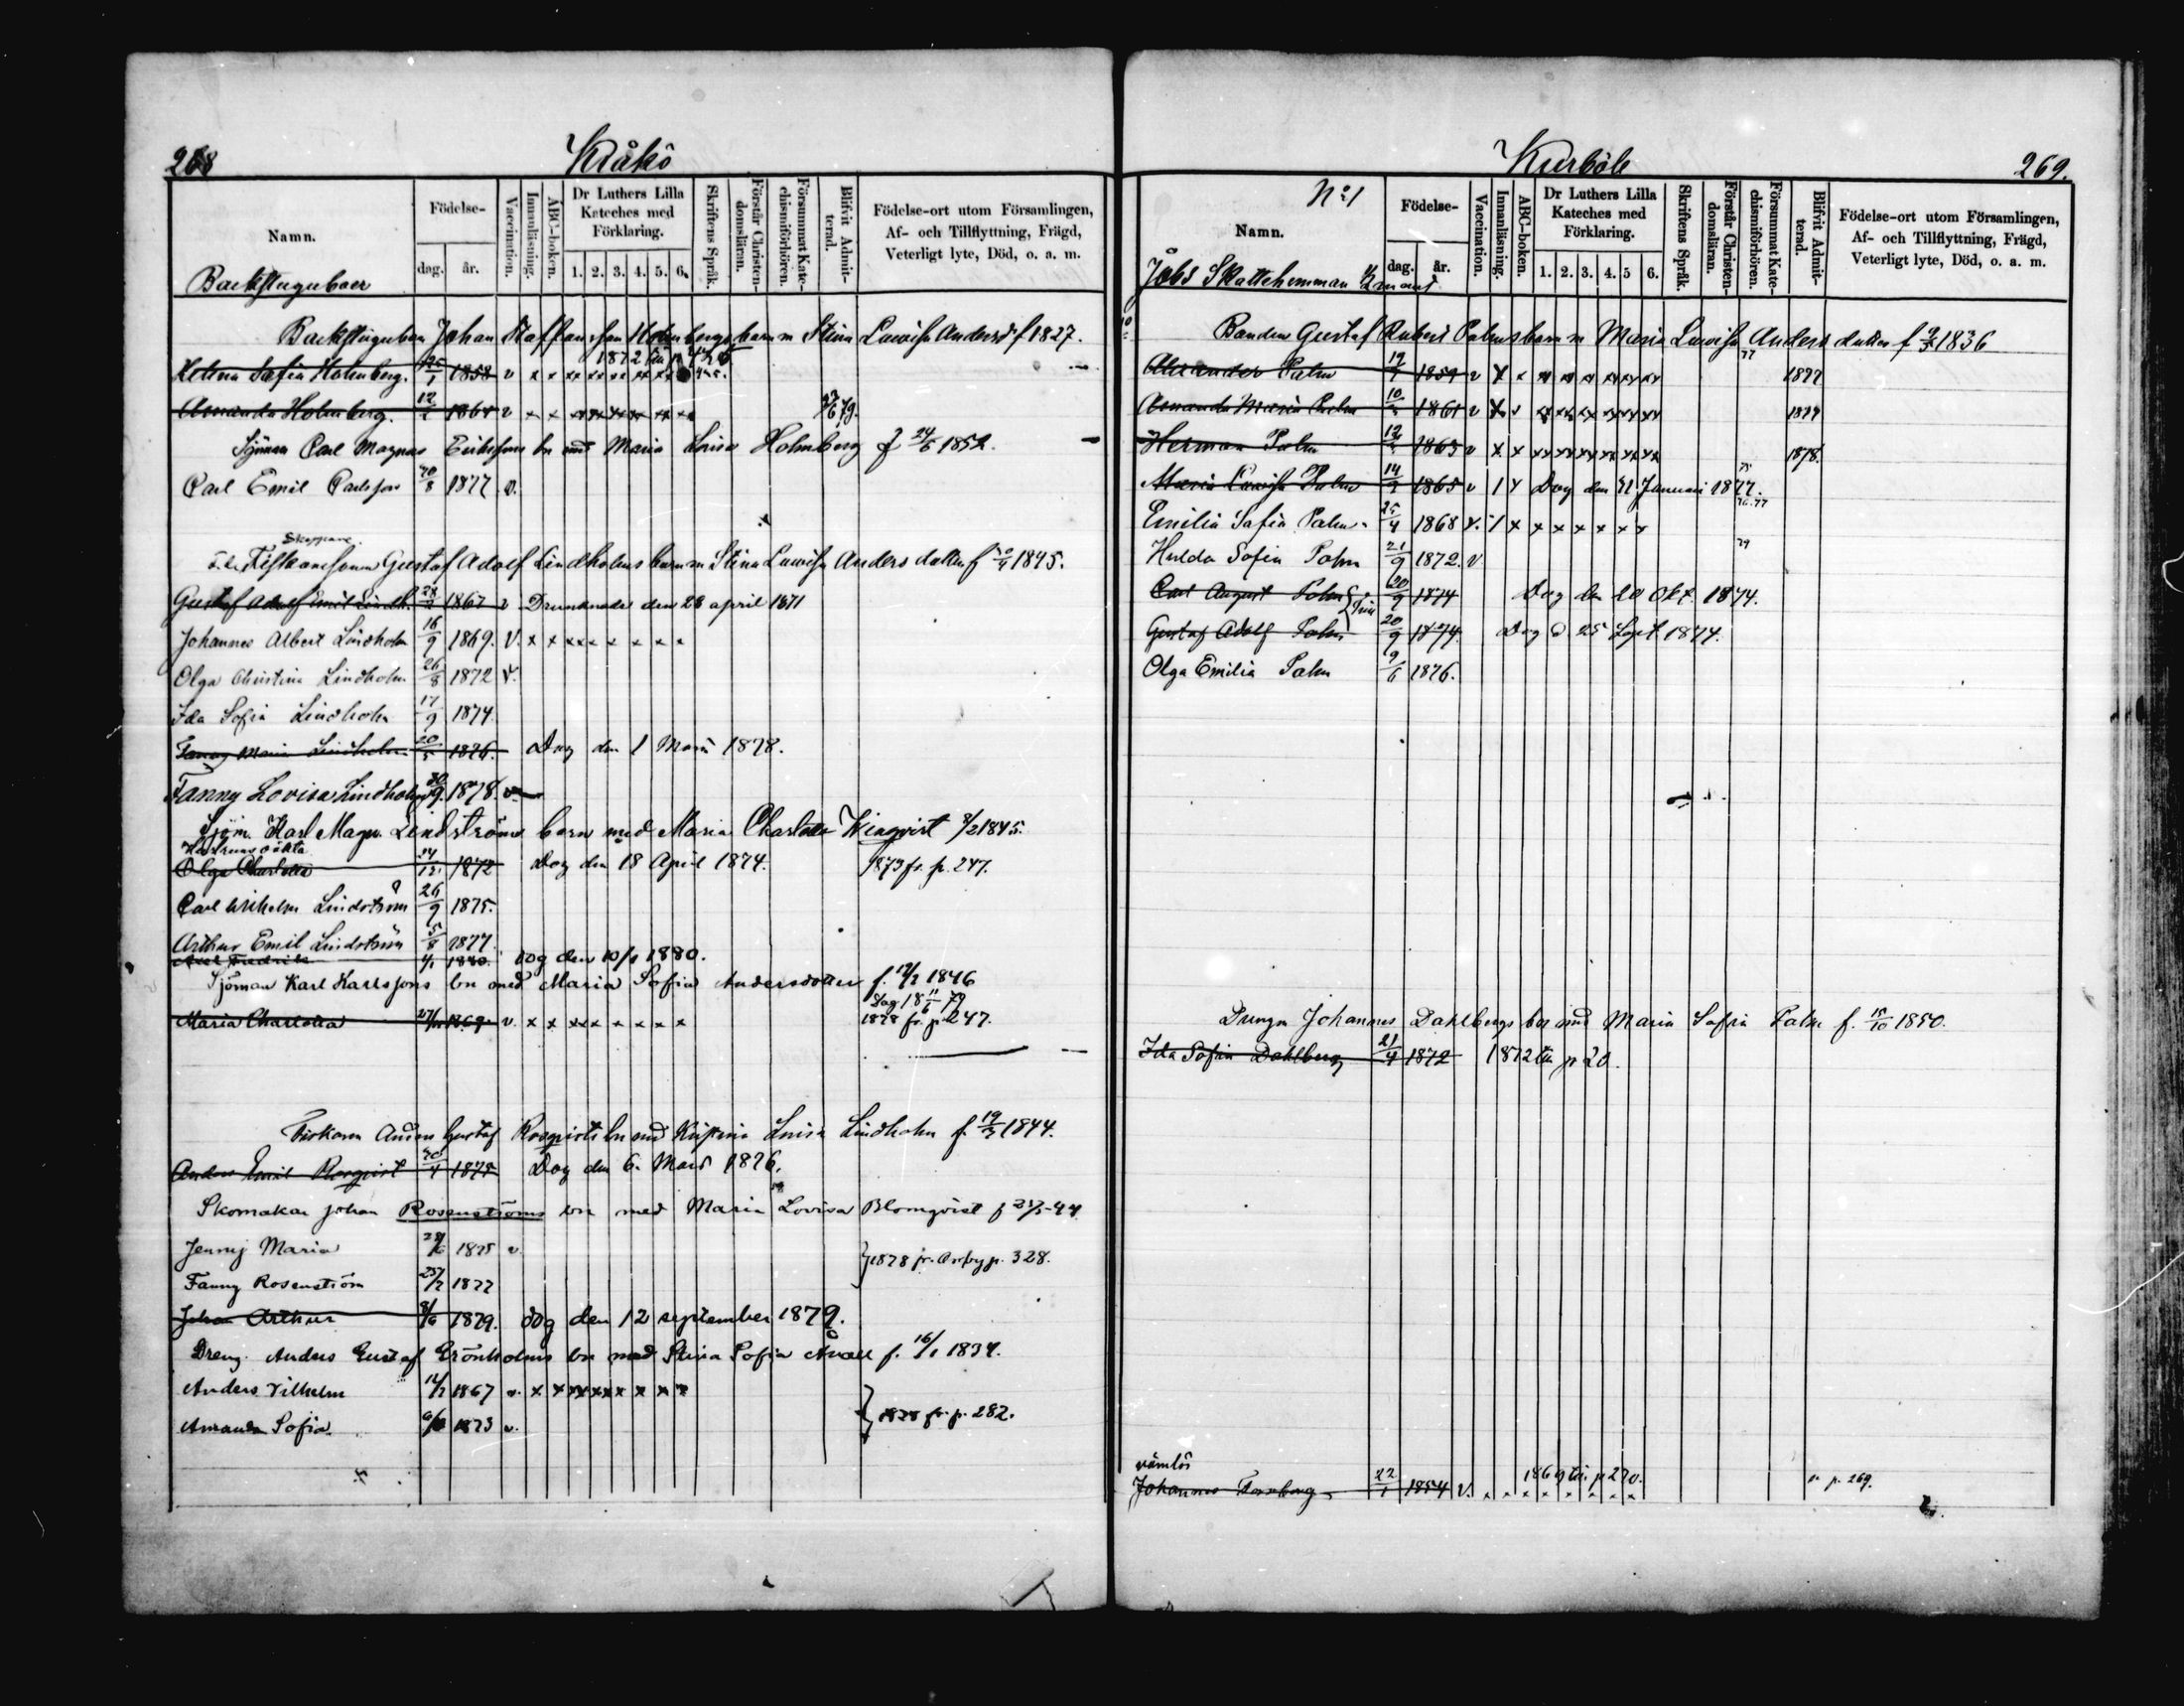 268
Kråkö
Namn.
Födelse-
dag.
år.
Vaccination.
Innanläsning.
ABC-boken.
Dr Luthers Lilla
Kateches med
Förklaring.
1. 2. 3. 4. 5. 6.
Skriftens Språk.
Förstår Christen-
domsläran.
Försummat Kate-
chismiförhören.
Blifvit Admit-
terad.
Födelse-ort utom Församlingen,
Af- och Tillflyttning, Frägd,
Veterligt lyte, Död, o. a. m.
Backstuguboer
Backstugubon Johan Staffansson Holmbergs barn m Stina Lovisa Andersd f 1827.
Helena Sofia Holmberg. 1858 v
Amanda Holmberg. 1861 v
Sjöman Carl Magnus Erikssons bn med Maria Lovisa Holmberg f 24/6 1852.
Carl Emil Carlsson 1877 v.
Skeppare
Gustaf Adolf Lindholms barn m Stina Lovisa Andersdotter f 1845.
Gustaf Adolf Emil Lindh. 1867 v Drunknade den 28 april 1871
Johannes Albert Lindholm 16/9 1869. V.
Olga Christina Lindholm 26/8 1872 v.
Ida Sofia Lindholm 17/9 1874
Fanny Maria Lindholm 20/5 1876. Dog den 1 Mars 1878.
Fanny Lovisa Lindholm 30/9. 1878. v.
Sjöm. Karl Magn. Lindströms barn med Maria Charlotta Winqvist 8/2 1845.
Hustruns oäkta
Olga Charlotta 14/12 1872 Dog den 18 April 1874. 1873 fr. p. 247.
Carl Wilhelm Lindström 26/9 1875.
Arthur Emil Lindström 5/8 1877.
Axel Fredrik 4/1 1880. dog den 10/1 1880.
Sjöman Karl Karlssons bn med Maria Sofia Andersdotter f. 1846
Dog 18 11/6 79
Maria Charlotta 1869 v. 1878 fr. p. 247.
Fiskaren Anders Gustaf Rosqvists bn med Kristina Lovisa Lindholm f. 19/3 1844.
Anders Emil Rosqvist 30/4 1875 Dog den 6. Mars 1876.
Skomakar Johan Rosenströms bn med Maria Lovisa Blomqvist f
Jenny Maria 1875 v.
} 1878 fr. p. 328.
Fanny Rosenström 1877
Johan Arthur 8/6 1879. dog den 12 september 1879.
Dreng. Anders Gustaf Grönholms bn med Stina Sofia f. 16/1 1834.
Anders Vilhelm 1867 v.
} 1878 fr. p. 282.
Amanda Sofia. 1873 v.
Kurböle
269.
No 1
Namn.
Födelse-
dag.
år.
Vaccination.
Innanläsning.
ABC-boken.
Dr Luthers Lilla
Kateches med
Förklaring.
1. 2. 3. 4. 5 6.
Skriftens Språk.
Förstår Christen-
domsläran.
Försummat Kate-
chismiförhören.
Blifvit Admit-
terad.
Födelse-ort utom Församlingen,
Af- och Tillflyttning, Frägd,
Veterligt lyte, Död, o. a. m.
Jobs Skattehemman
Bonden Gustaf Robert Palms barn m Maria Lovisa Anders dotter f 1836
77
Alexander Palm 1859 v 1877
Amanda Maria Palm 1861 v 1879
Herman Palm 1863 v 1878.
Maria Lovisa Palm 14/9 1865 v Dog den 31 Januari 1877.
Emilia Sofia Palm. 25/4 1868 v.
Hulda Sofia Palm 21/9 1872. v
Carl August Palm 20/9 1874 Dog den 20 Okt. 1874.
Gustaf Adolf Palm 20/9 1874. Dog d 25 Sept. 1874.
Olga Emilia Palm 9/6 1876.
Drengen Johannes Dahlbergs bn med Maria Sofia Palm f. 15/10 1850.
Ida Sofia Dahlberg 21/4 1872 1872 till p 20.
Johannes 22/1 1854 v. 1869 till p 270. p. 269.